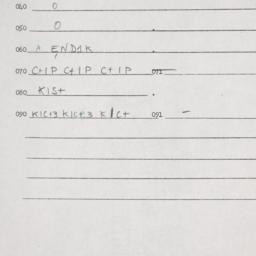 040 0
050 0
060 A ENDIK
070 C+IP C+IP C+IP 071 —
080 KIS+
090 KIC+3 KIC+3 KIC+ 091 —